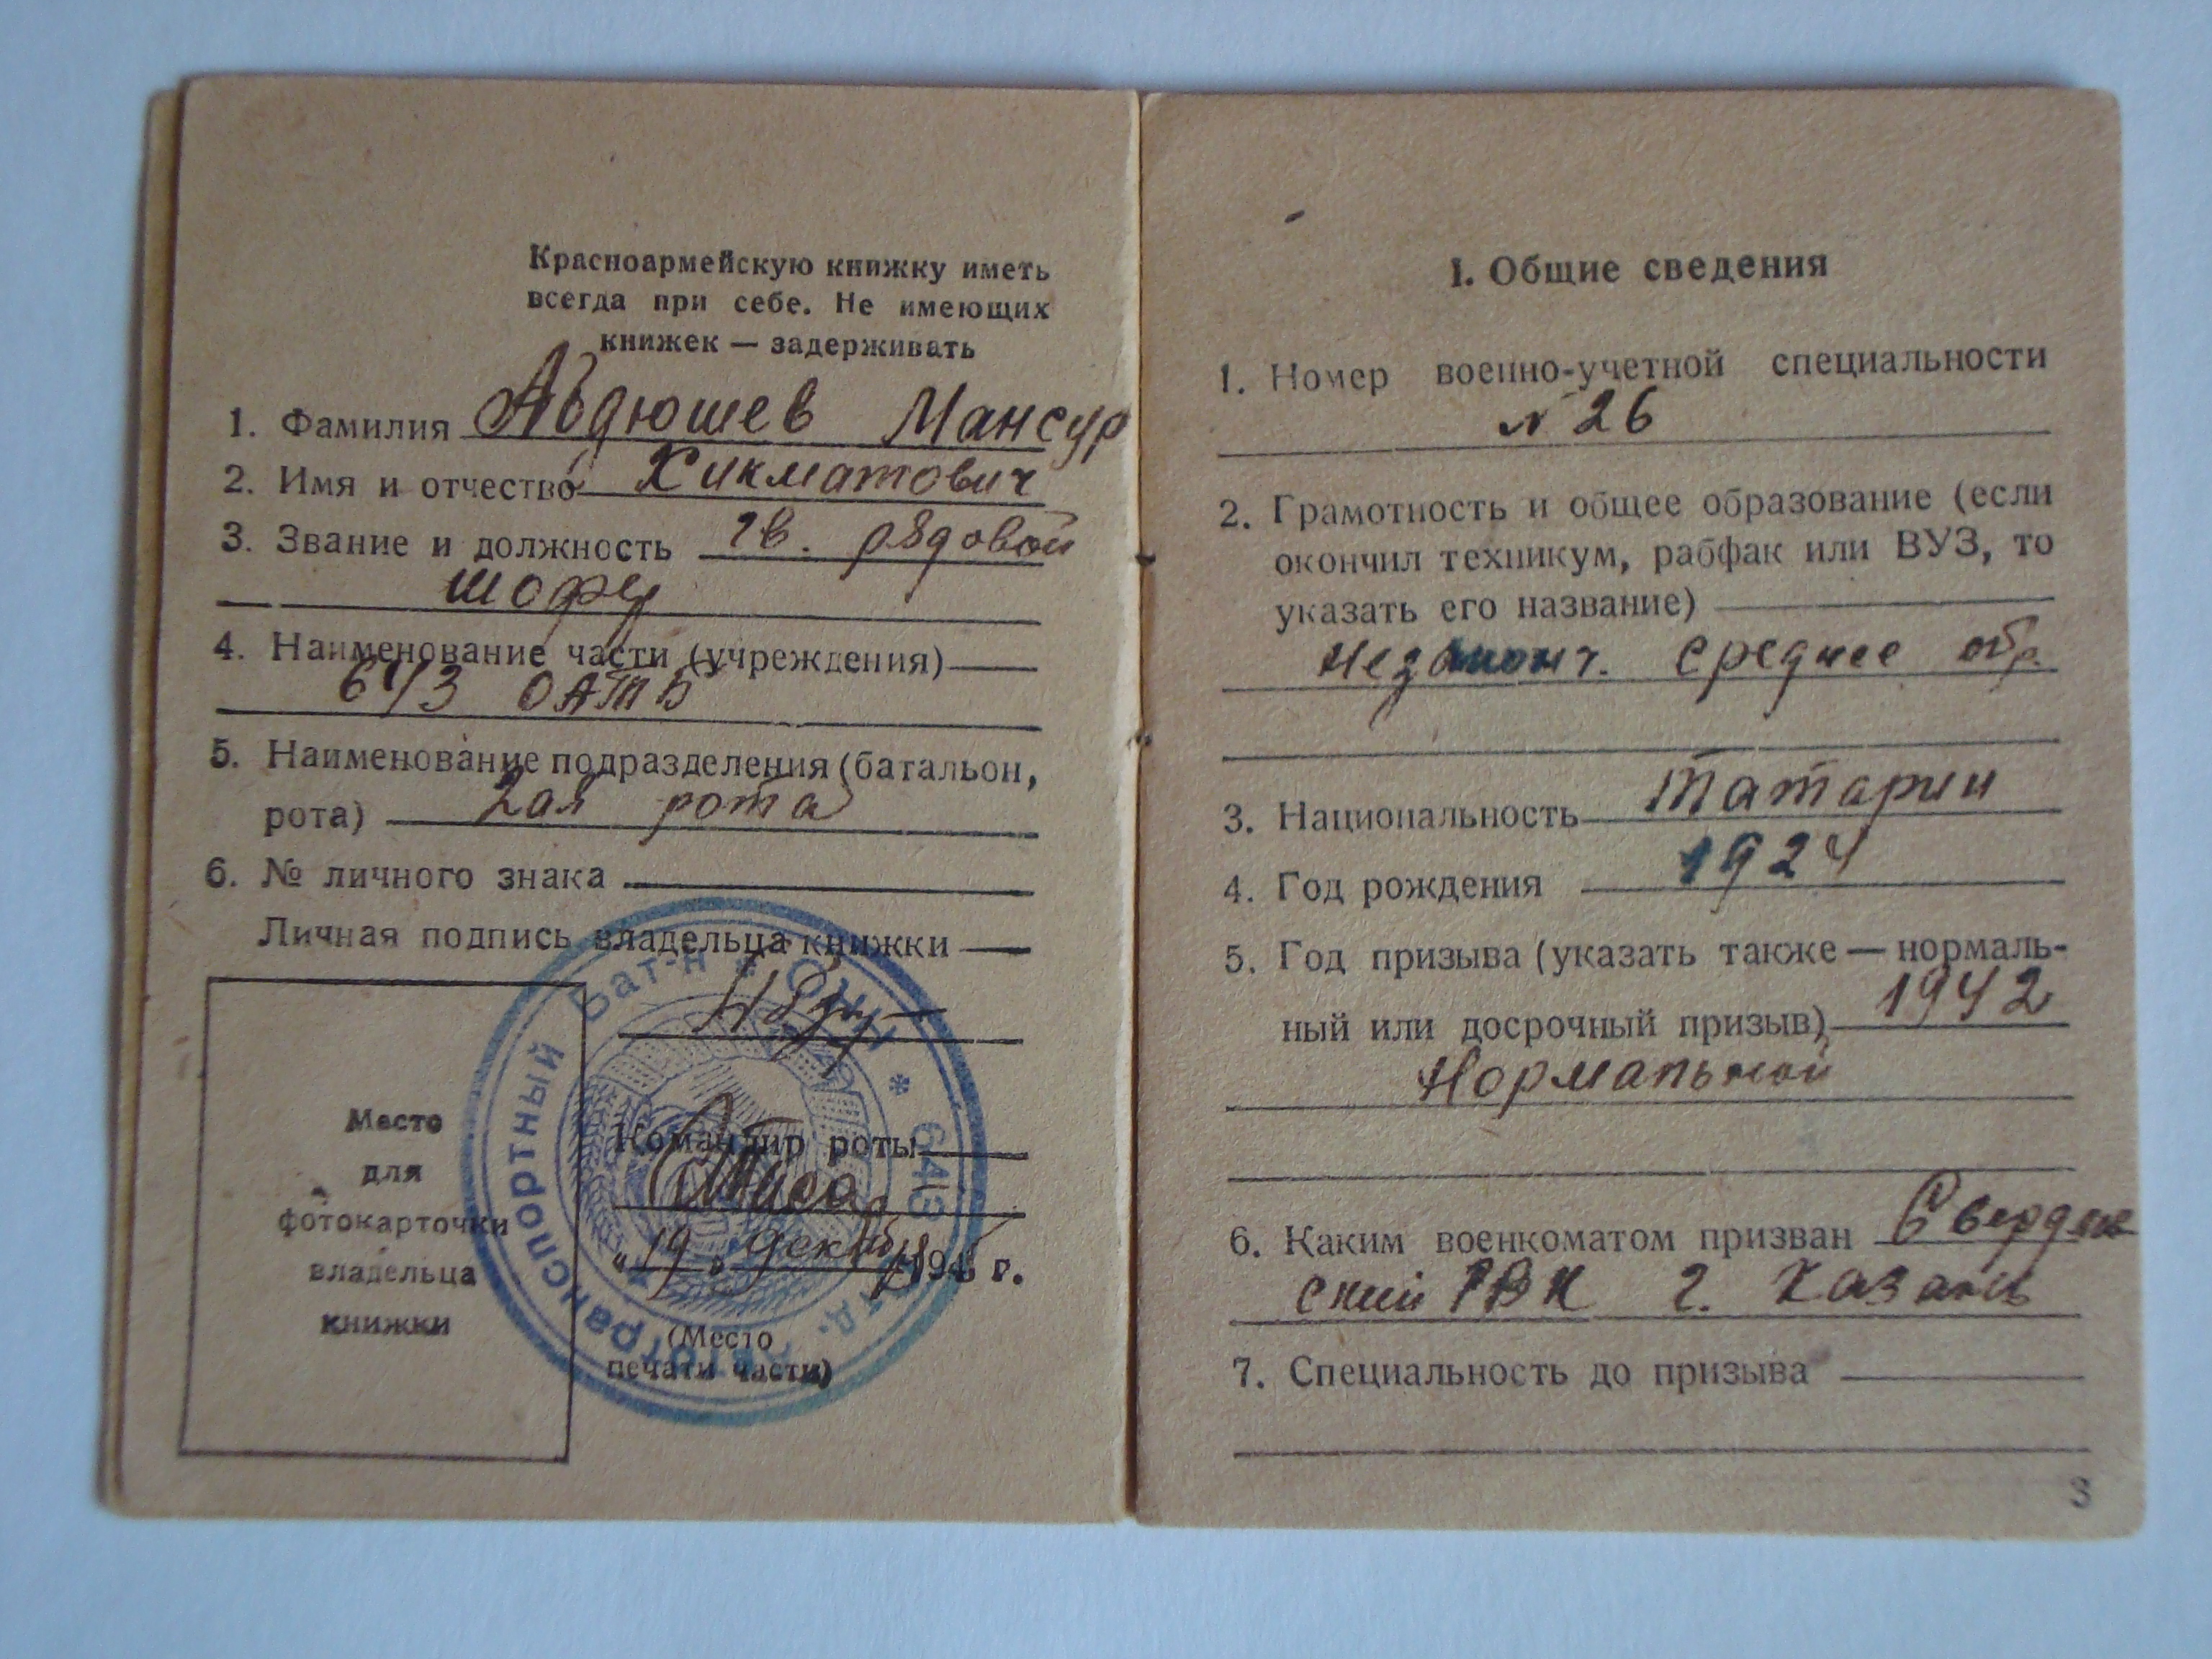 Красноармейскую книжку иметь
всегда при себе. Не имеющих
книжек — задерживать
1. Фамилия Абдюшев Мансур
2. Имя и отчество Хикматович
3. Звание и должность гв. рядовой
шофер
4. Наименование части (учреждения)
643 ОАТБ
5. Наименование подразделения (батальон,
рота) 2ая рота
6. № личного знака
Личная подпись владельца книжки
Место
для
фотокарточки
владельца
книжки
Командир роты
„19„ декабря 1945 г.
(Место
печати части)
Бат-н * 643 транспортный
I. Общие сведения
1. Номер военно-учетной специальности
№ 26
2. Грамотность и общее образование (если
окончил техникум, рабфак или ВУЗ, то
указать его название)
Незаконч. среднее обр.
3. Национальность татарин
4. Год рождения 1924
5. Год призыва (указать также — нормаль-
ный или досрочный призыв) 1942
Нормальной
6. Каким военкоматом призван Свердлов
ский РВК г. Казань
7. Специальность до призыва
3